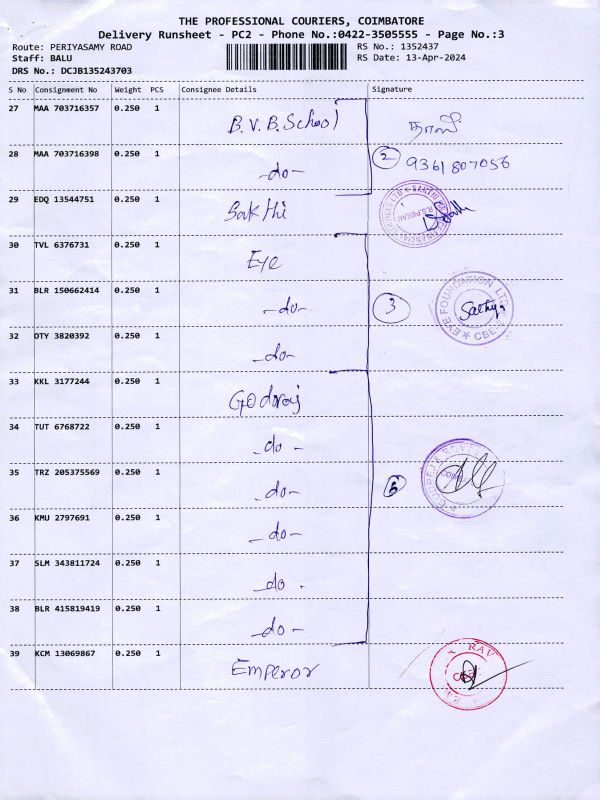 THE PROFESSIONAL COURIERS, COIMBATORE
Delivery Runsheet - PC2 - Phone No.:0422-3505555 - Page No.:3
Route: PERIYASAMY ROAD RS No.: 1352437
Staff: BALU RS Date: 13-Apr-2024
DRS No.: DCJB135243703
S No Consignment No Weight PCS Consignee Details Signature
27 MAA 703716357 0.250 1 B.V.B. School
28 MAA 703716398 0.250 1 -do- 2 9361807056
29 EDQ 13544751 0.250 1 Sakthi
30 TVL 6376731 0.250 1 Eye
31 BLR 150662414 0.250 1 -do- 3 EYE FOUNDATION LTD CBE Sathya
32 OTY 3820392 0.250 1 -do-
33 KKL 3177244 0.250 1 Godrej
34 TUT 6768722 0.250 1 -do-
35 TRZ 205375569 0.250 1 -do- 6
36 KMU 2797691 0.250 1 -do-
37 SLM 343811724 0.250 1 -do-
38 BLR 415819419 0.250 1 -do-
39 KCM 13069867 0.250 1 Emperor